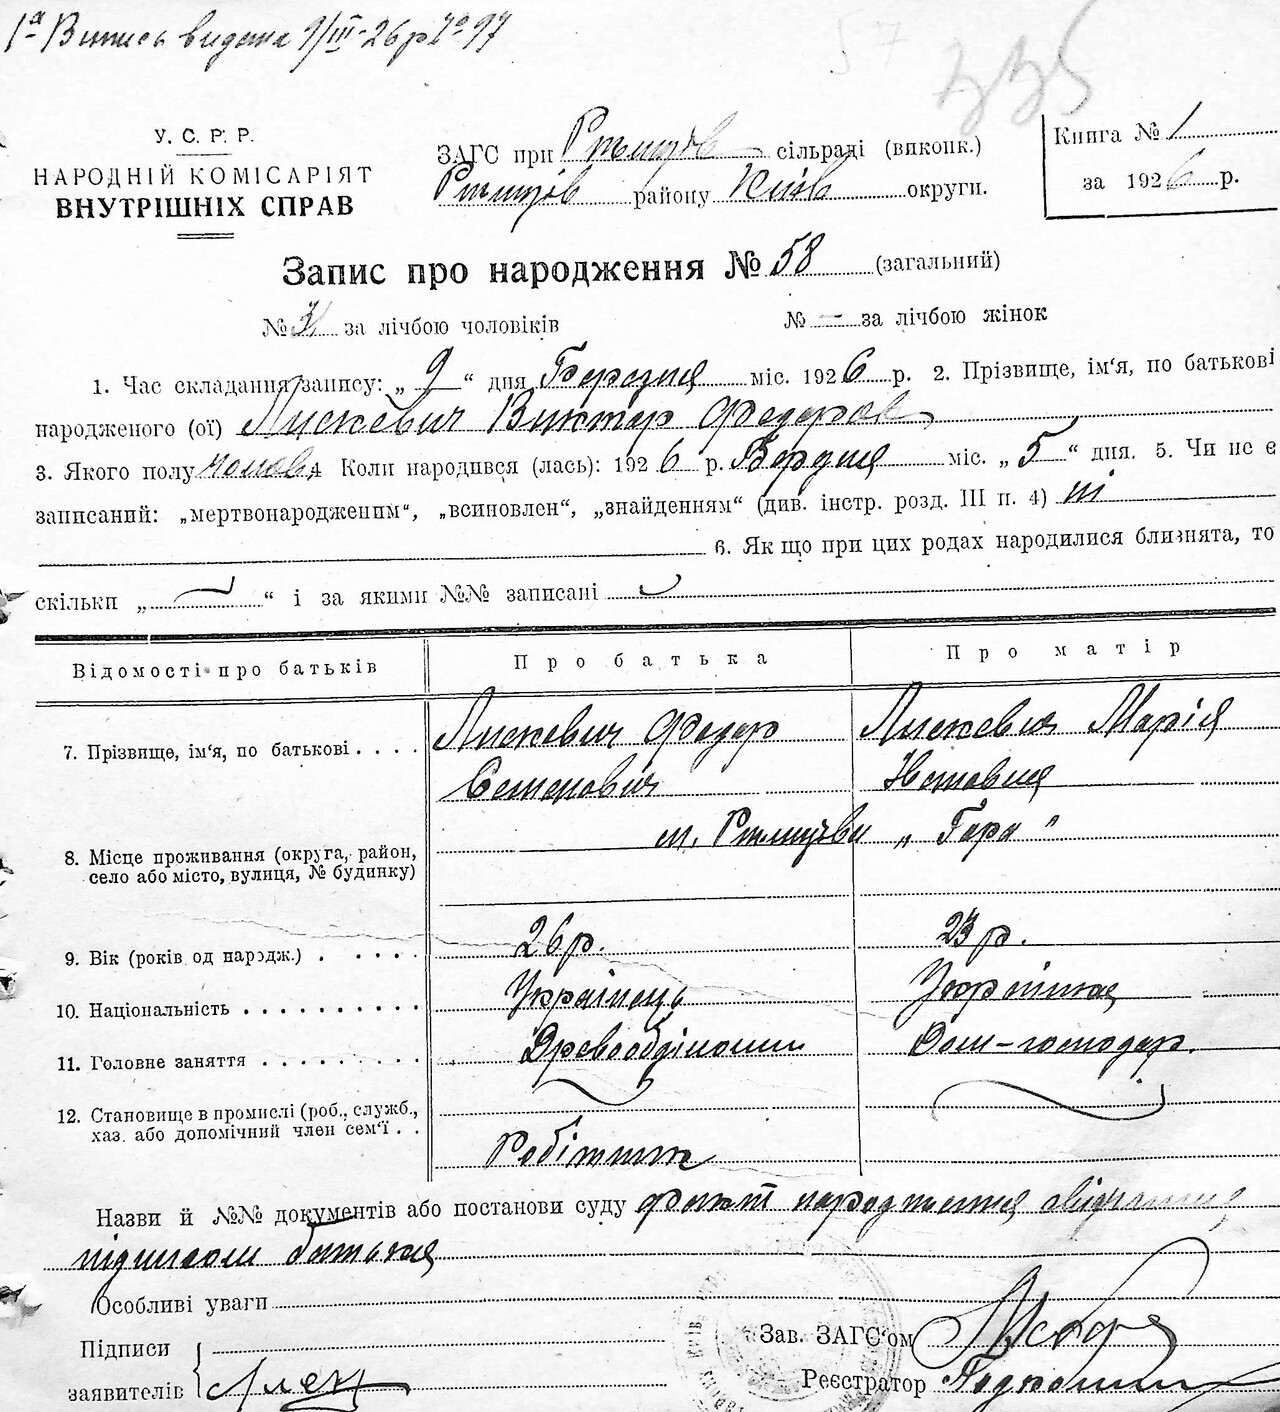 1а Випись видана 9/III-26р № 97
335
У. С. Р. Р.
НАРОДНІЙ КОМІСАРІЯТ
ВНУТРІШНІХ СПРАВ
ЗАГС при Ржищів сільраді (виконк.)
Ржищів району Київ округи.
Книга № 1
за 1926 р.
Запис про народження № 58 (загальний)
№ за лічбою чоловіків № — за лічбою жінок
1. Час складання запису: „ 9 “ дня Березня міс. 1926 р. 2. Прізвище, ім‘я, по батькові
народженого (ої) Лискевич Виктор Федоров
3. Якого полу чолов. 4 Коли народився (лась): 1926 р. міс. „ 5 “ дня. 5. Чи не є
записаний: „мертвонародженим“, „всиновлен“, „знайденням“ (див. інстр. розд. III п. 4) ні
6. Як що при цих родах народилися близнята, то
скільки „ — “ і за якими №№ записані
Відомості про батьків
Про батька
Про матір
7. Прізвище, ім‘я, по батькові . . . .
Лискевич Федор
Лискевич Марія
8. Місце проживання (округа, район,
село або місто, вулиця, № будинку)
м. Ржищів „ Гора “
9. Вік (років од народж.) . . . . .
26 р.
23 р.
10. Національність . . . . . . . . . .
Українець
Українка
11. Головне заняття . . . . . . . . .
Дом-господар.
12. Становище в промислі (роб., служб.,
хаз. або допомічний член сем‘ї . .
Робітник
Назви й №№ документів або постанови суду факт народження
підписом батька
Особливі уваги
Підписи
заявителів
Зав. ЗАГС‘ом
Реєстратор